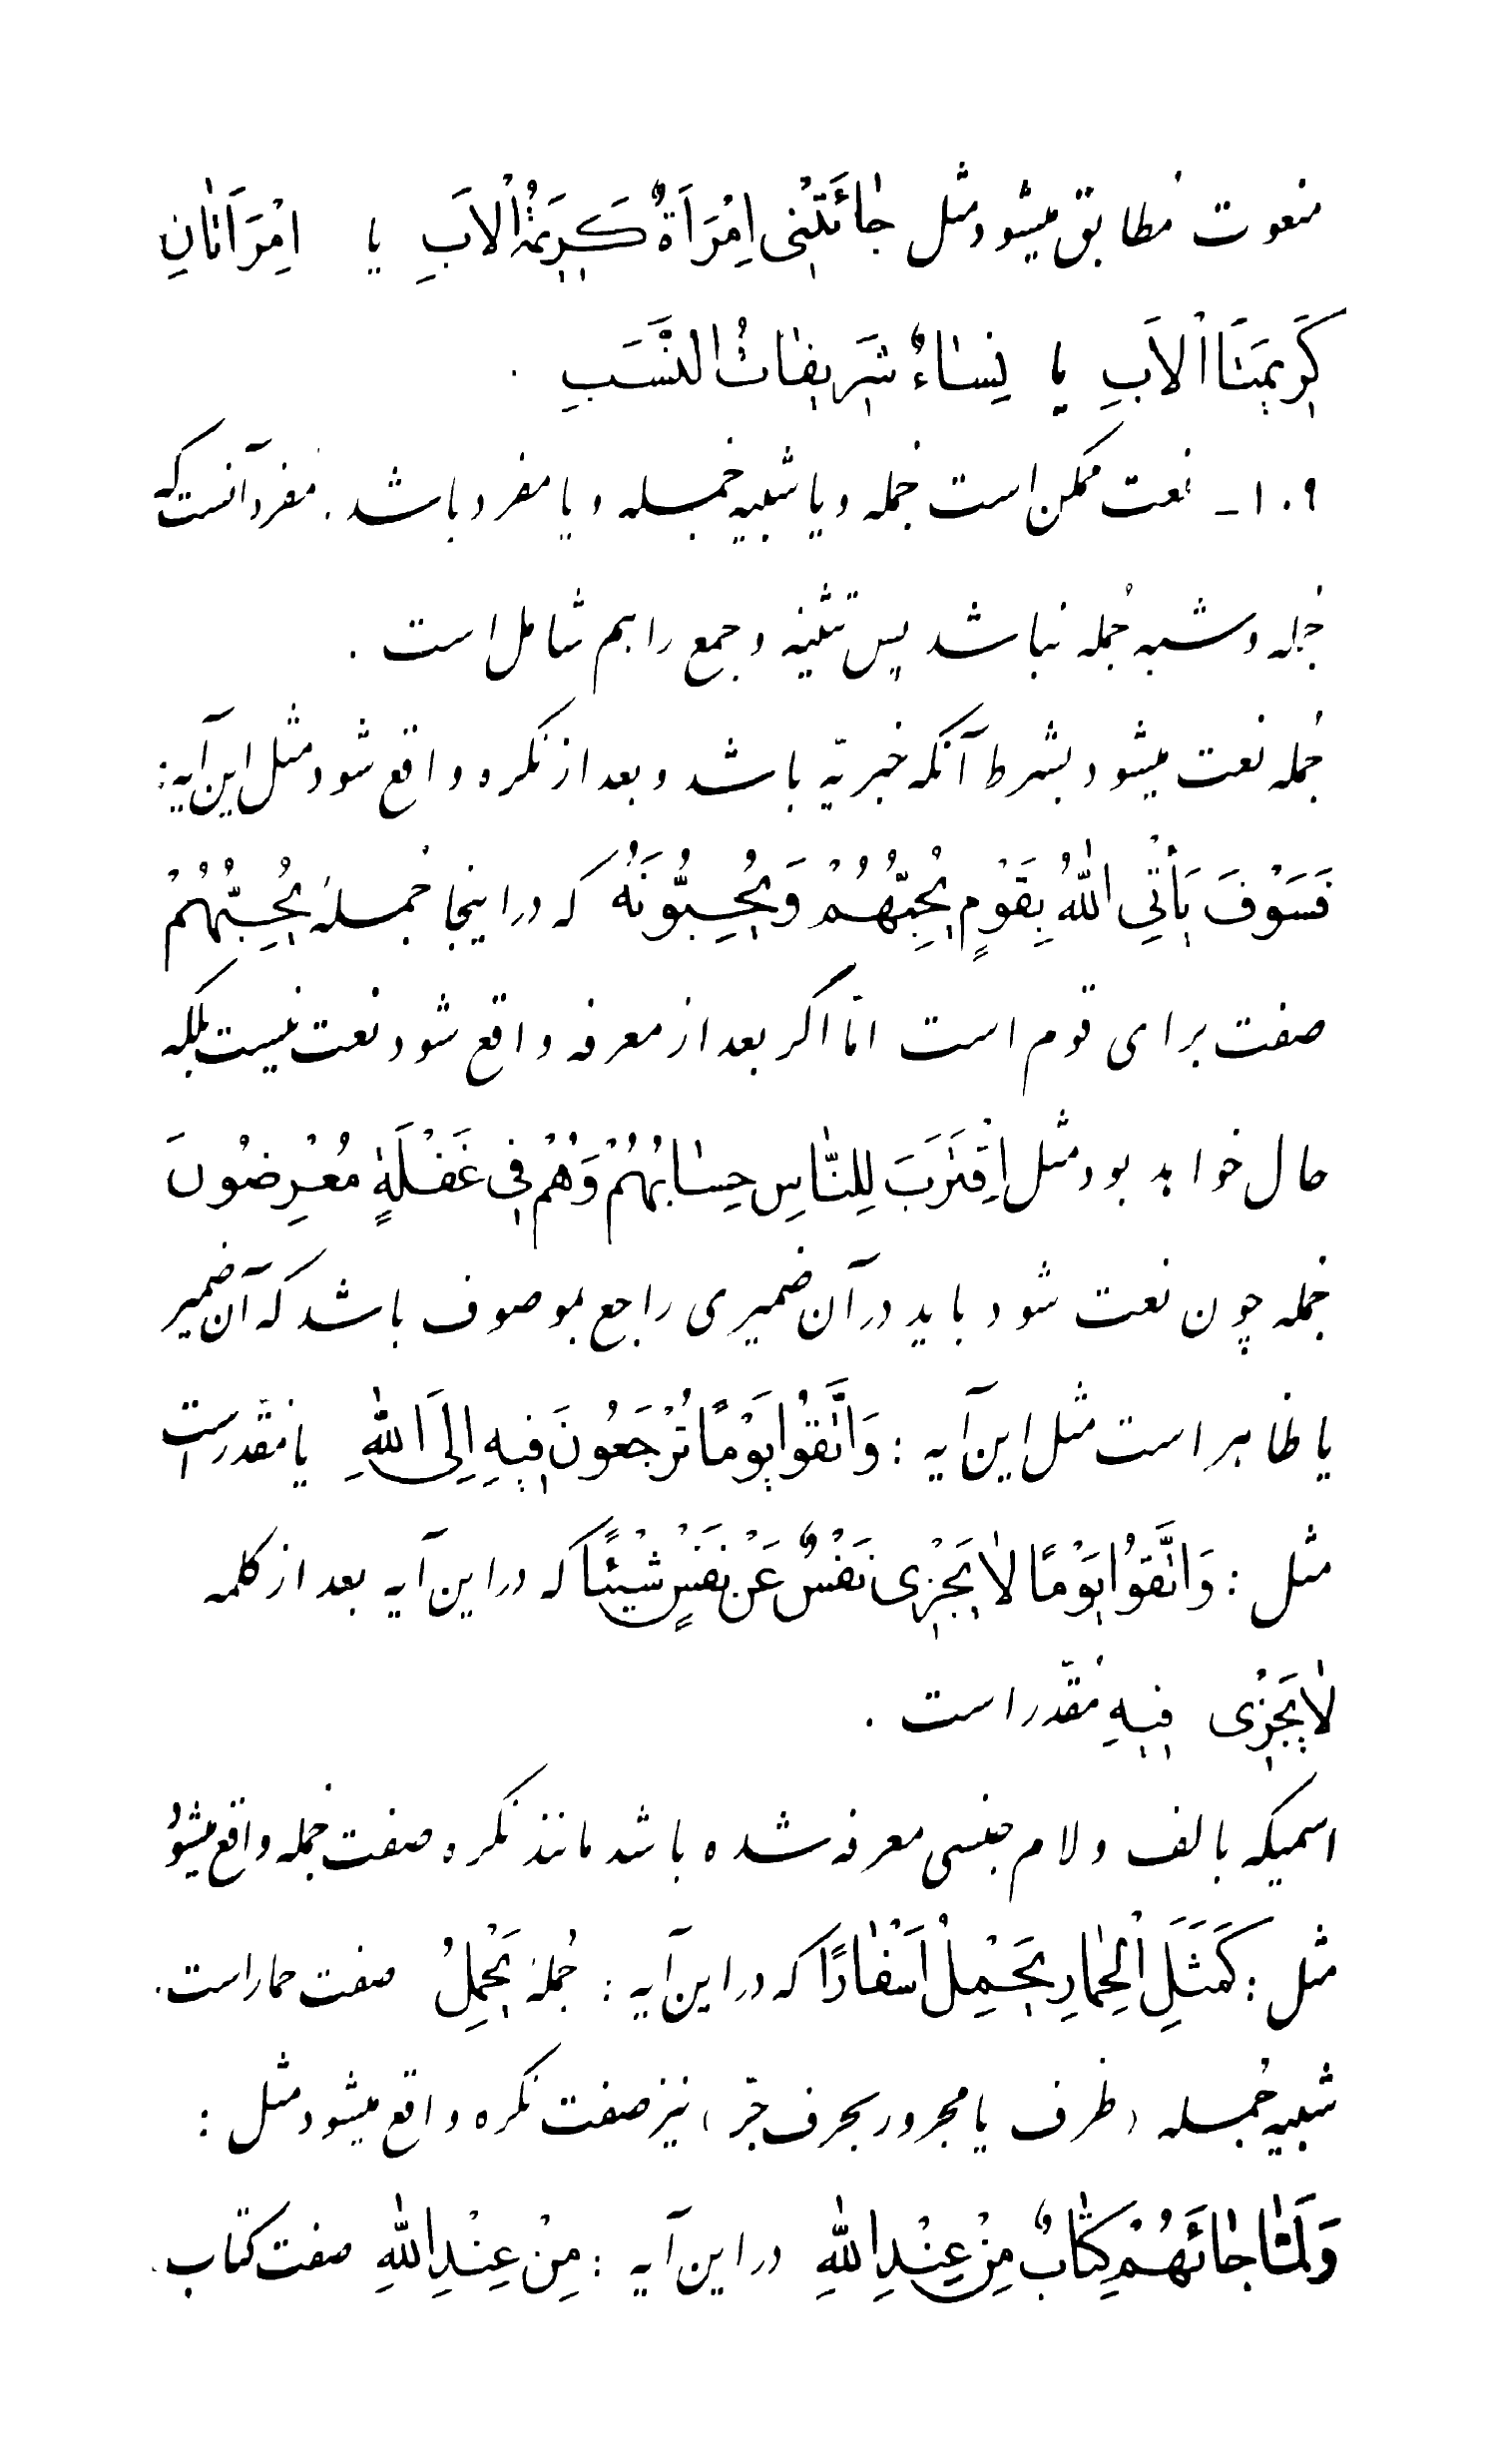 منعوت مطابق میشود مثل جٰائَتْنٖی اِمْرَأَةٌ کَرٖیمَةُ الْاَبِ یا اِمْرَأَتٰانِ
کَرٖیمَتَا الْاَبِ یا نِسٰاءٌ شَرٖیفٰاتُ النَّسَبِ .
۱۰۹ـ نعت ممکن است جمله و یا شبیه جمله و یا مفرد باشد . مفرد آنست که
جمله و شبه جمله نباشد پس تثنیه و جمع را هم شامل است .
جمله نعت میشود بشرط آنکه خبریّه باشد و بعد از نکره واقع شود مثل این آیه :
فَسَوْفَ یَأْتِی اللّٰهُ بِقَوْمٍ یُحِبُّهُمْ وَیُحِبُّونَهُ که در اینجا جملهٔ یُحِبُّهُمْ
صفت برای قوم است امّا اگر بعد از معرفه واقع شود نعت نیست بلکه
حال خواهد بود مثل اِقْتَرَبَ لِلنّٰاسِ حِسٰابُهُمْ وَهُمْ فٖی غَفْلَةٍ مُعْرِضُونَ
جمله چون نعت شود باید در آن ضمیری راجع بموصوف باشد که آن ضمیر
یا ظاهر است مثل این آیه : وَاتَّقُوا یَوْمًا تُرْجَعُونَ فٖیهِ اِلَی اللّٰهِ یا مقدر است
مثل : وَاتَّقُوا یَوْمًا لاٰ یَجْزٖی نَفْسٌ عَنْ نَفْسٍ شَیْئًا که در این آیه بعد از کلمه
لاٰ یَجْزٖی فٖیهِ مُقدّر است .
اسمیکه بالف و لام جنسی معرفه شده باشد مانند نکره صفت جمله واقع میشود
مثل : کَمَثَلِ الْحِمٰارِ یَحْمِلُ اَسْفٰارًا که در این آیه : جُملهٔ یَحْمِلُ صفت حمار است .
شبیه جُمله ( ظرف یا مجرور بحرف جرّ ) نیز صفت نکره واقع میشود مثل :
وَلَمّٰا جٰائَهُمْ کِتٰابٌ مِنْ عِنْدِ اللّٰهِ در این آیه : مِنْ عِنْدِ اللّٰهِ صفت کتاب .